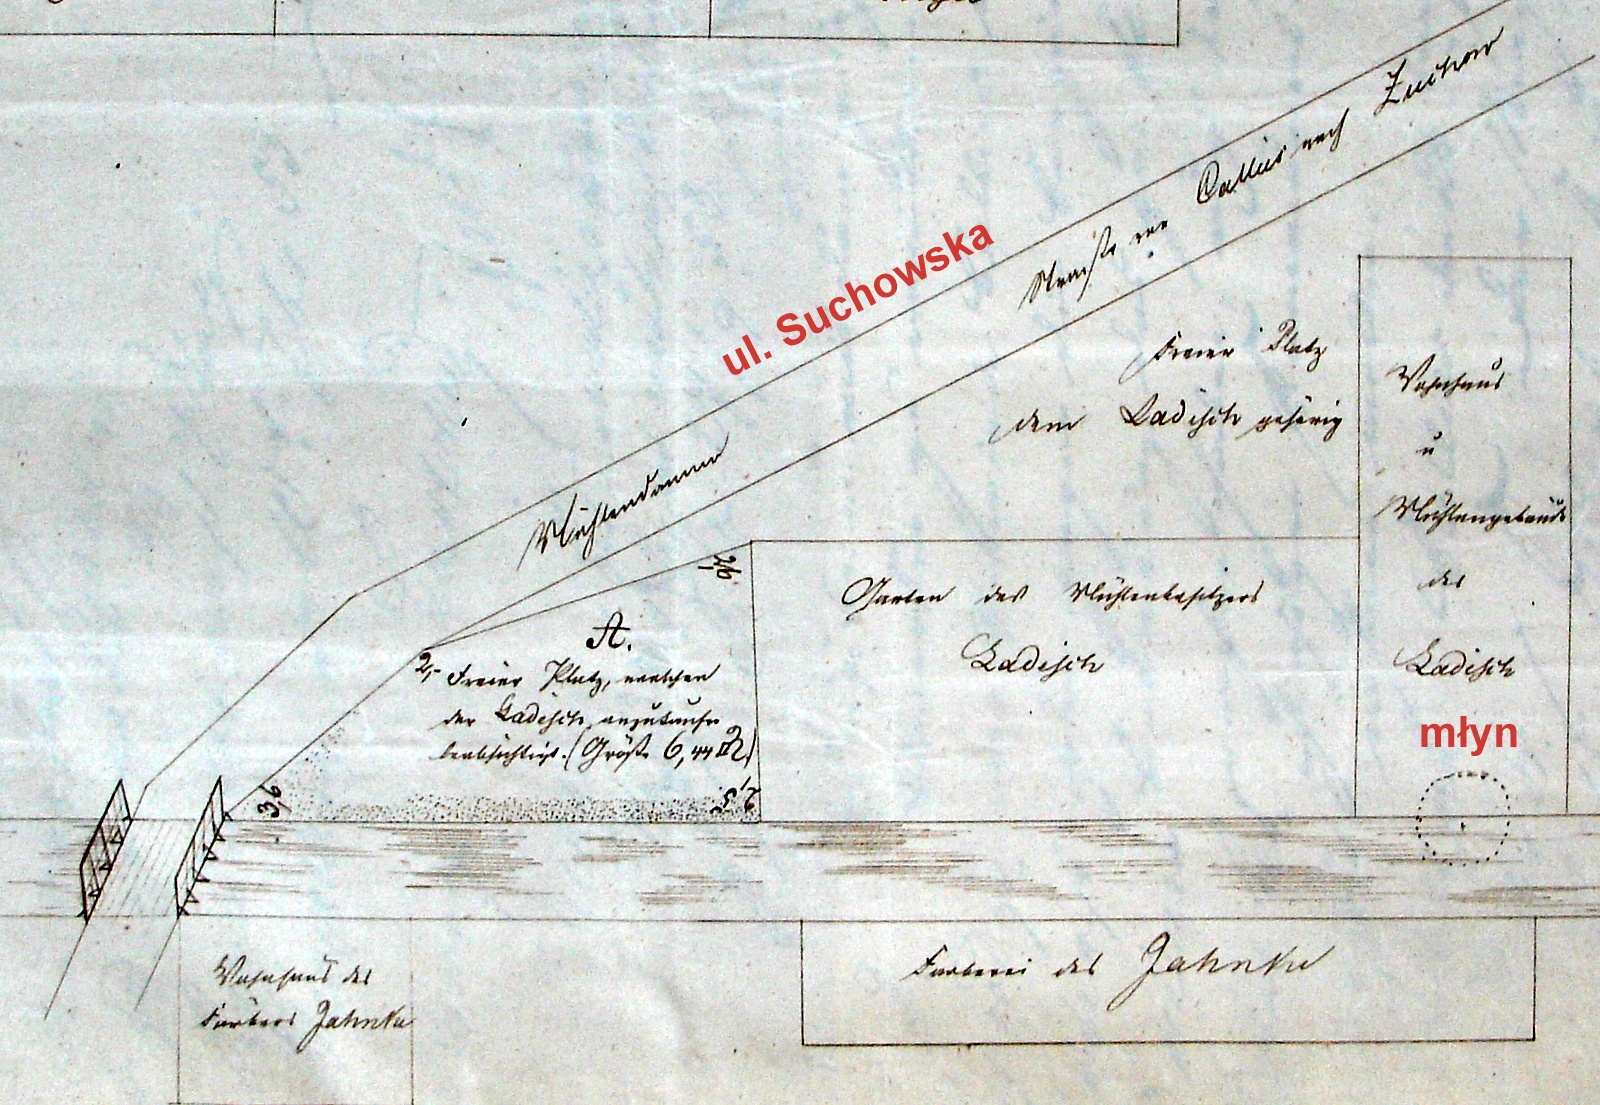 Straße von Callies nach Zuchow
ul. Suchowska
Mühlendamm
Freier Platz
dem Ladisch gehörig
Wohnhaus
u
Mühlengebäude
des
Ladisch
młyn
Garten des Mühlenbesitzers
Ladisch
A.
Freier Platz, welchen
der Ladisch anzukaufen
beabsichtigt. (Größe 6,44 □R)
2,-
3,6
Färberei des Jahnke
Wohnhaus des
Färbers Jahnke